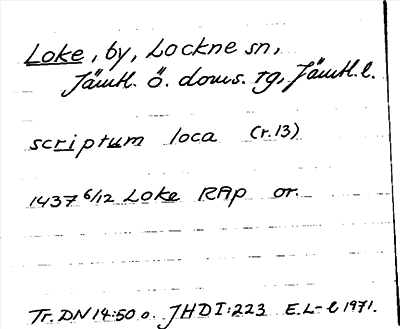 Loke, by, Lockne sn,
Jämtl. ö. doms. rg, Jämtl. l.
scriptum loca (r. 13)
1437 6/12 Loke RAp or.
Tr. DN 14:50 o. JHD I:223 E. L-l 1971.